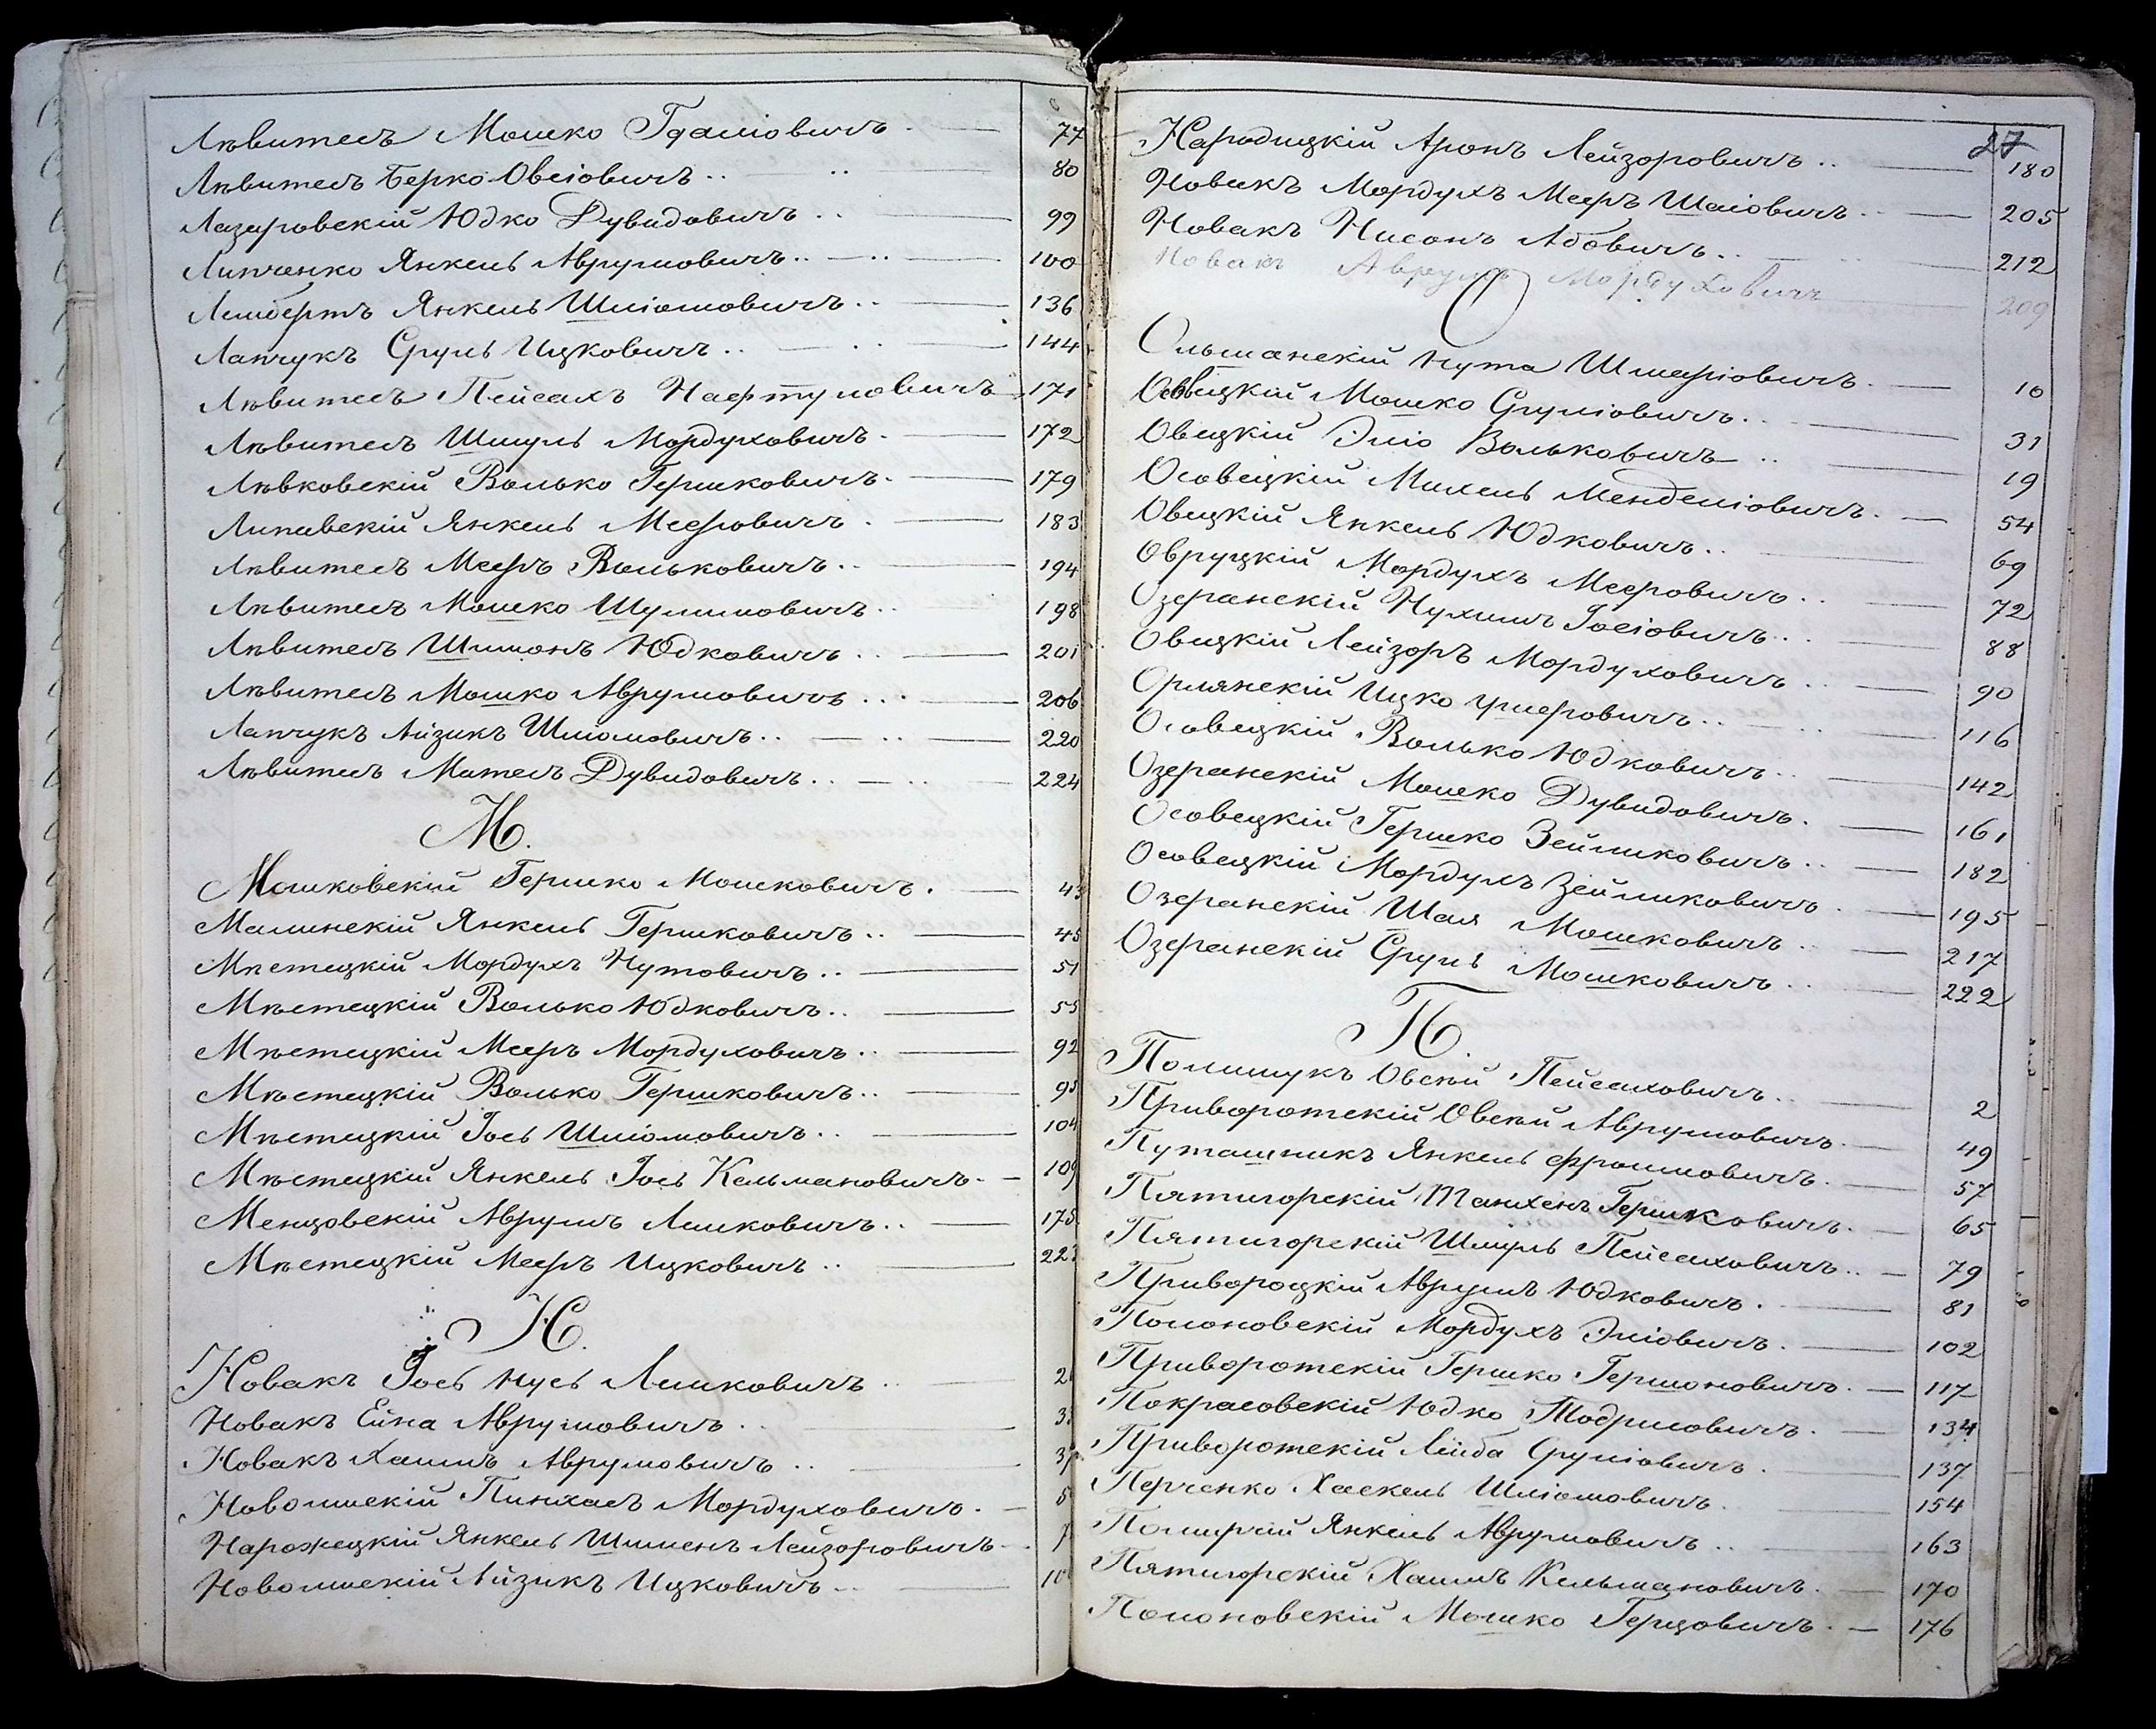 Лѣвитесъ Мошко Гдаліовичъ 77
Лѣвитесъ Берко Овсіовичъ 80
Лазаровскій Юдко Дувидовичъ 99
Липченко Янкель Аврумовичъ 100
Лембертъ Янкель Шліомовичъ 136
Лапчукъ Сруль Ицковичъ 144
Лѣвитесъ Пейсахъ Нафтуловичъ 171
Лѣвитесъ Шмуль Мордуховичъ 172
Лѣвковскій Волько Гершковичъ 179
Липавскій Янкель Мееровичъ 183
Лѣвитесъ Мееръ Вольковичъ 194
Лѣвитесъ Мошко Шулимовичъ 198
Лѣвитесъ Шимонъ Юдковичъ 201
Лѣвитесъ Мошко Аврумовичъ 206
Лапчукъ Айзикъ Шліомовичъ 220
Лѣвитесъ Мотель Дувидовичъ 224
М.
Мошковскій Гершко Мошковичъ 43
Малинскій Янкель Гершковичъ 45
Мѣстецкій Мордухъ Нутовичъ 51
Мѣстецкій Волько Юдковичъ 55
Мѣстецкій Мееръ Мордуховичъ 92
Мѣстецкій Волько Гершковичъ 95
Мѣстецкій Іось Шліомовичъ 104
Мѣстецкій Янкель Іось Кельмановичъ 109
Менцовскій Аврумъ Лешковичъ 175
Мѣстецкій Мееръ Ицковичъ 223
Н.
Новакъ Іось Нусь Лешковичъ 2
Новакъ Ейна Аврумовичъ 3
Новакъ Хаимъ Аврумовичъ 3
Новолинскій Пинхасъ Мордуховичъ 5
Нарожецкій Янкель Шименъ Лейзоровичъ 7
Новолинскій Айзикъ Ицковичъ 10
27
Народицкій Аронъ Лейзоровичъ 180
Новакъ Мордухъ Мееръ Шаіовичъ 205
Новакъ Нисонъ Абовичъ 212
Новакъ Аврумъ Мордуховичъ 209
О
Ольшанскій Нута Шмеріовичъ 10
Овецкій Мошко Сруліовичъ 31
Овецкій Эліо Вольковичъ 19
Осовецкій Михель Менделіовичъ 54
Овецкій Янкель Юдковичъ 69
Овруцкій Мордухъ Мееровичъ 72
Озеранскій Нухимъ Іосіовичъ 88
Овецкій Лейзоръ Мордуховичъ 90
Орлянскій Ицко Ушеровичъ 116
Осовецкій Волько Юдковичъ 142
Озеранскій Мошко Дувидовичъ 161
Осовецкій Гершко Зейликовичъ 182
Осовецкій Мордухъ Зейликовичъ 195
Озеранскій Шая Мошковичъ 217
Озеранскій Сруль Мошковичъ 222
П.
Полищукъ Овсѣй Пейсаховичъ 2
Приворотскій Овсѣй Аврумовичъ 49
Путашникъ Янкель Фроимовичъ 57
Пятигорскій Танхенъ Гершковичъ 65
Пятигорскій Шмуль Пейсаховичъ 79
Привороцкій Аврумъ Юдковичъ 81
Полоновскій Мордухъ Эліовичъ 102
Приворотскій Гершко Гершоновичъ 117
Покрасовскій Юдко Тодрисовичъ 134
Приворотскій Лейба Сруліовичъ 137
Перченко Хаскель Шліомовичъ 154
Янкель Аврумовичъ 163
Пятигорскій Хаимъ Кельмановичъ 170
Полоновскій Мошко Герцовичъ 176